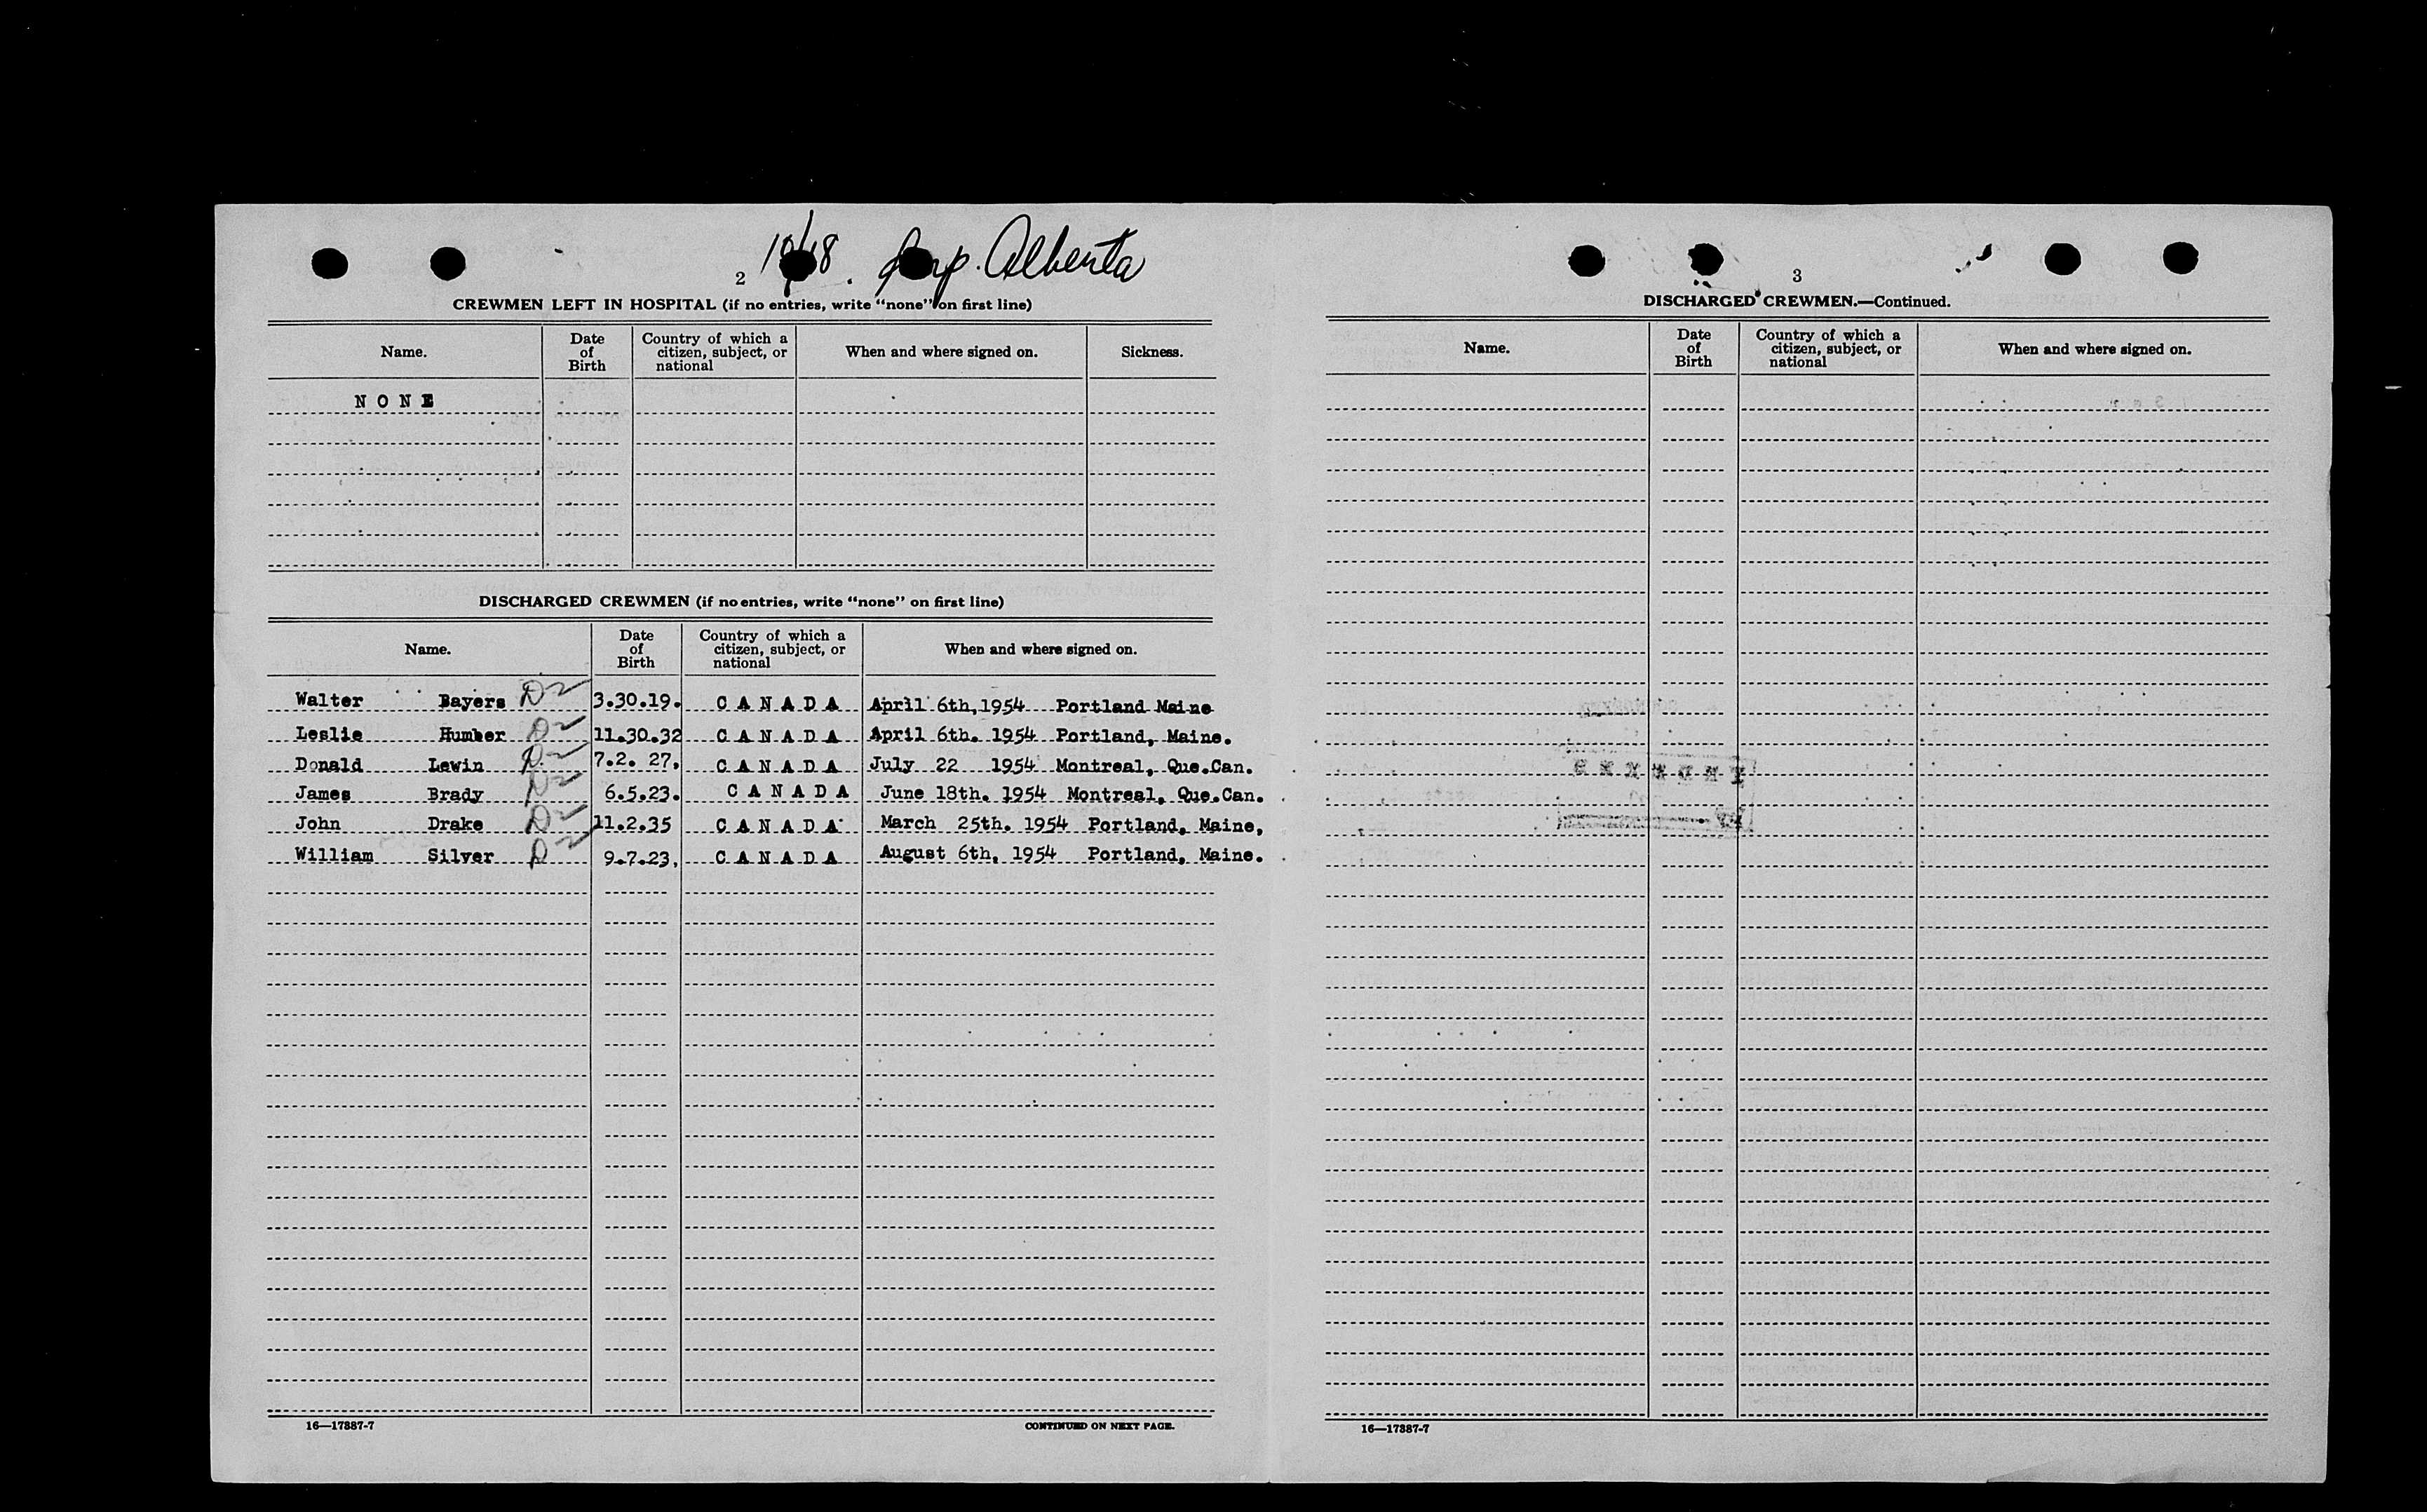 2 Imp. Alberta
CREWMEN LEFT IN HOSPITAL (if no entries, write “none” on first line)
Name. Date of Birth Country of which a citizen, subject, or national When and where signed on. Sickness.
N O N E
DISCHARGED CREWMEN (if no entries, write “none” on first line)
Name. Date of Birth Country of which a citizen, subject, or national When and where signed on.
Walter Bayers D2 3.30.19. C A N A D A April 6th,1954 Portland Maine
Leslie Humber D2 11.30.32 C A N A D A April 6th. 1954 Portland, Maine.
Donald Lewin D2 7.2. 27, C A N A D A July 22 1954 Montreal, Que.Can.
James Brady D2 6.5.23. C A N A D A June 18th. 1954 Montreal, Que.Can.
John Drake D2 11.2.35 C A N A D A March 25th. 1954 Portland, Maine,
William Silver D2 9.7.23, C A N A D A August 6th, 1954 Portland, Maine.
16—17887-7 CONTINUED ON NEXT PAGE.
3
DISCHARGED CREWMEN.—Continued.
Name. Date of Birth Country of which a citizen, subject, or national When and where signed on.
16—17887-7